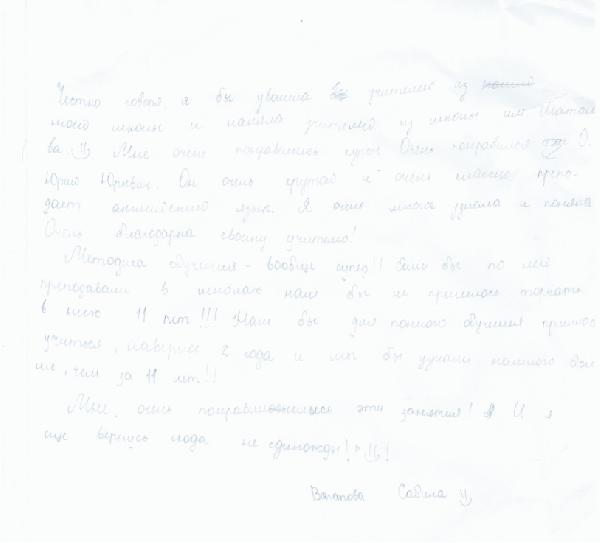 Честно говоря, я бы уволила учителей из
моей школы и наняла учителей из школы им. Шатало
ва. Мне очень понравились курсы Очень понравился О.
Юрий Юрьевич. Он очень крутой и очень классно препо-
дает английский язык. Я очень много узнала и поняла
Очень благодарна своему учителю!
Методика обучения - вообще супер!! Если бы по ней
преподавали в школах нам бы не пришлось торчать
в ней 11 лет!!! Нам бы для полного обучения пришлось
учиться, наверное 2 года и мы бы узнали намного боль
ше, чем за 11 лет!!
Мне очень понравились эти занятия! И я
еще вернусь сюда не единожды!!
Сабина